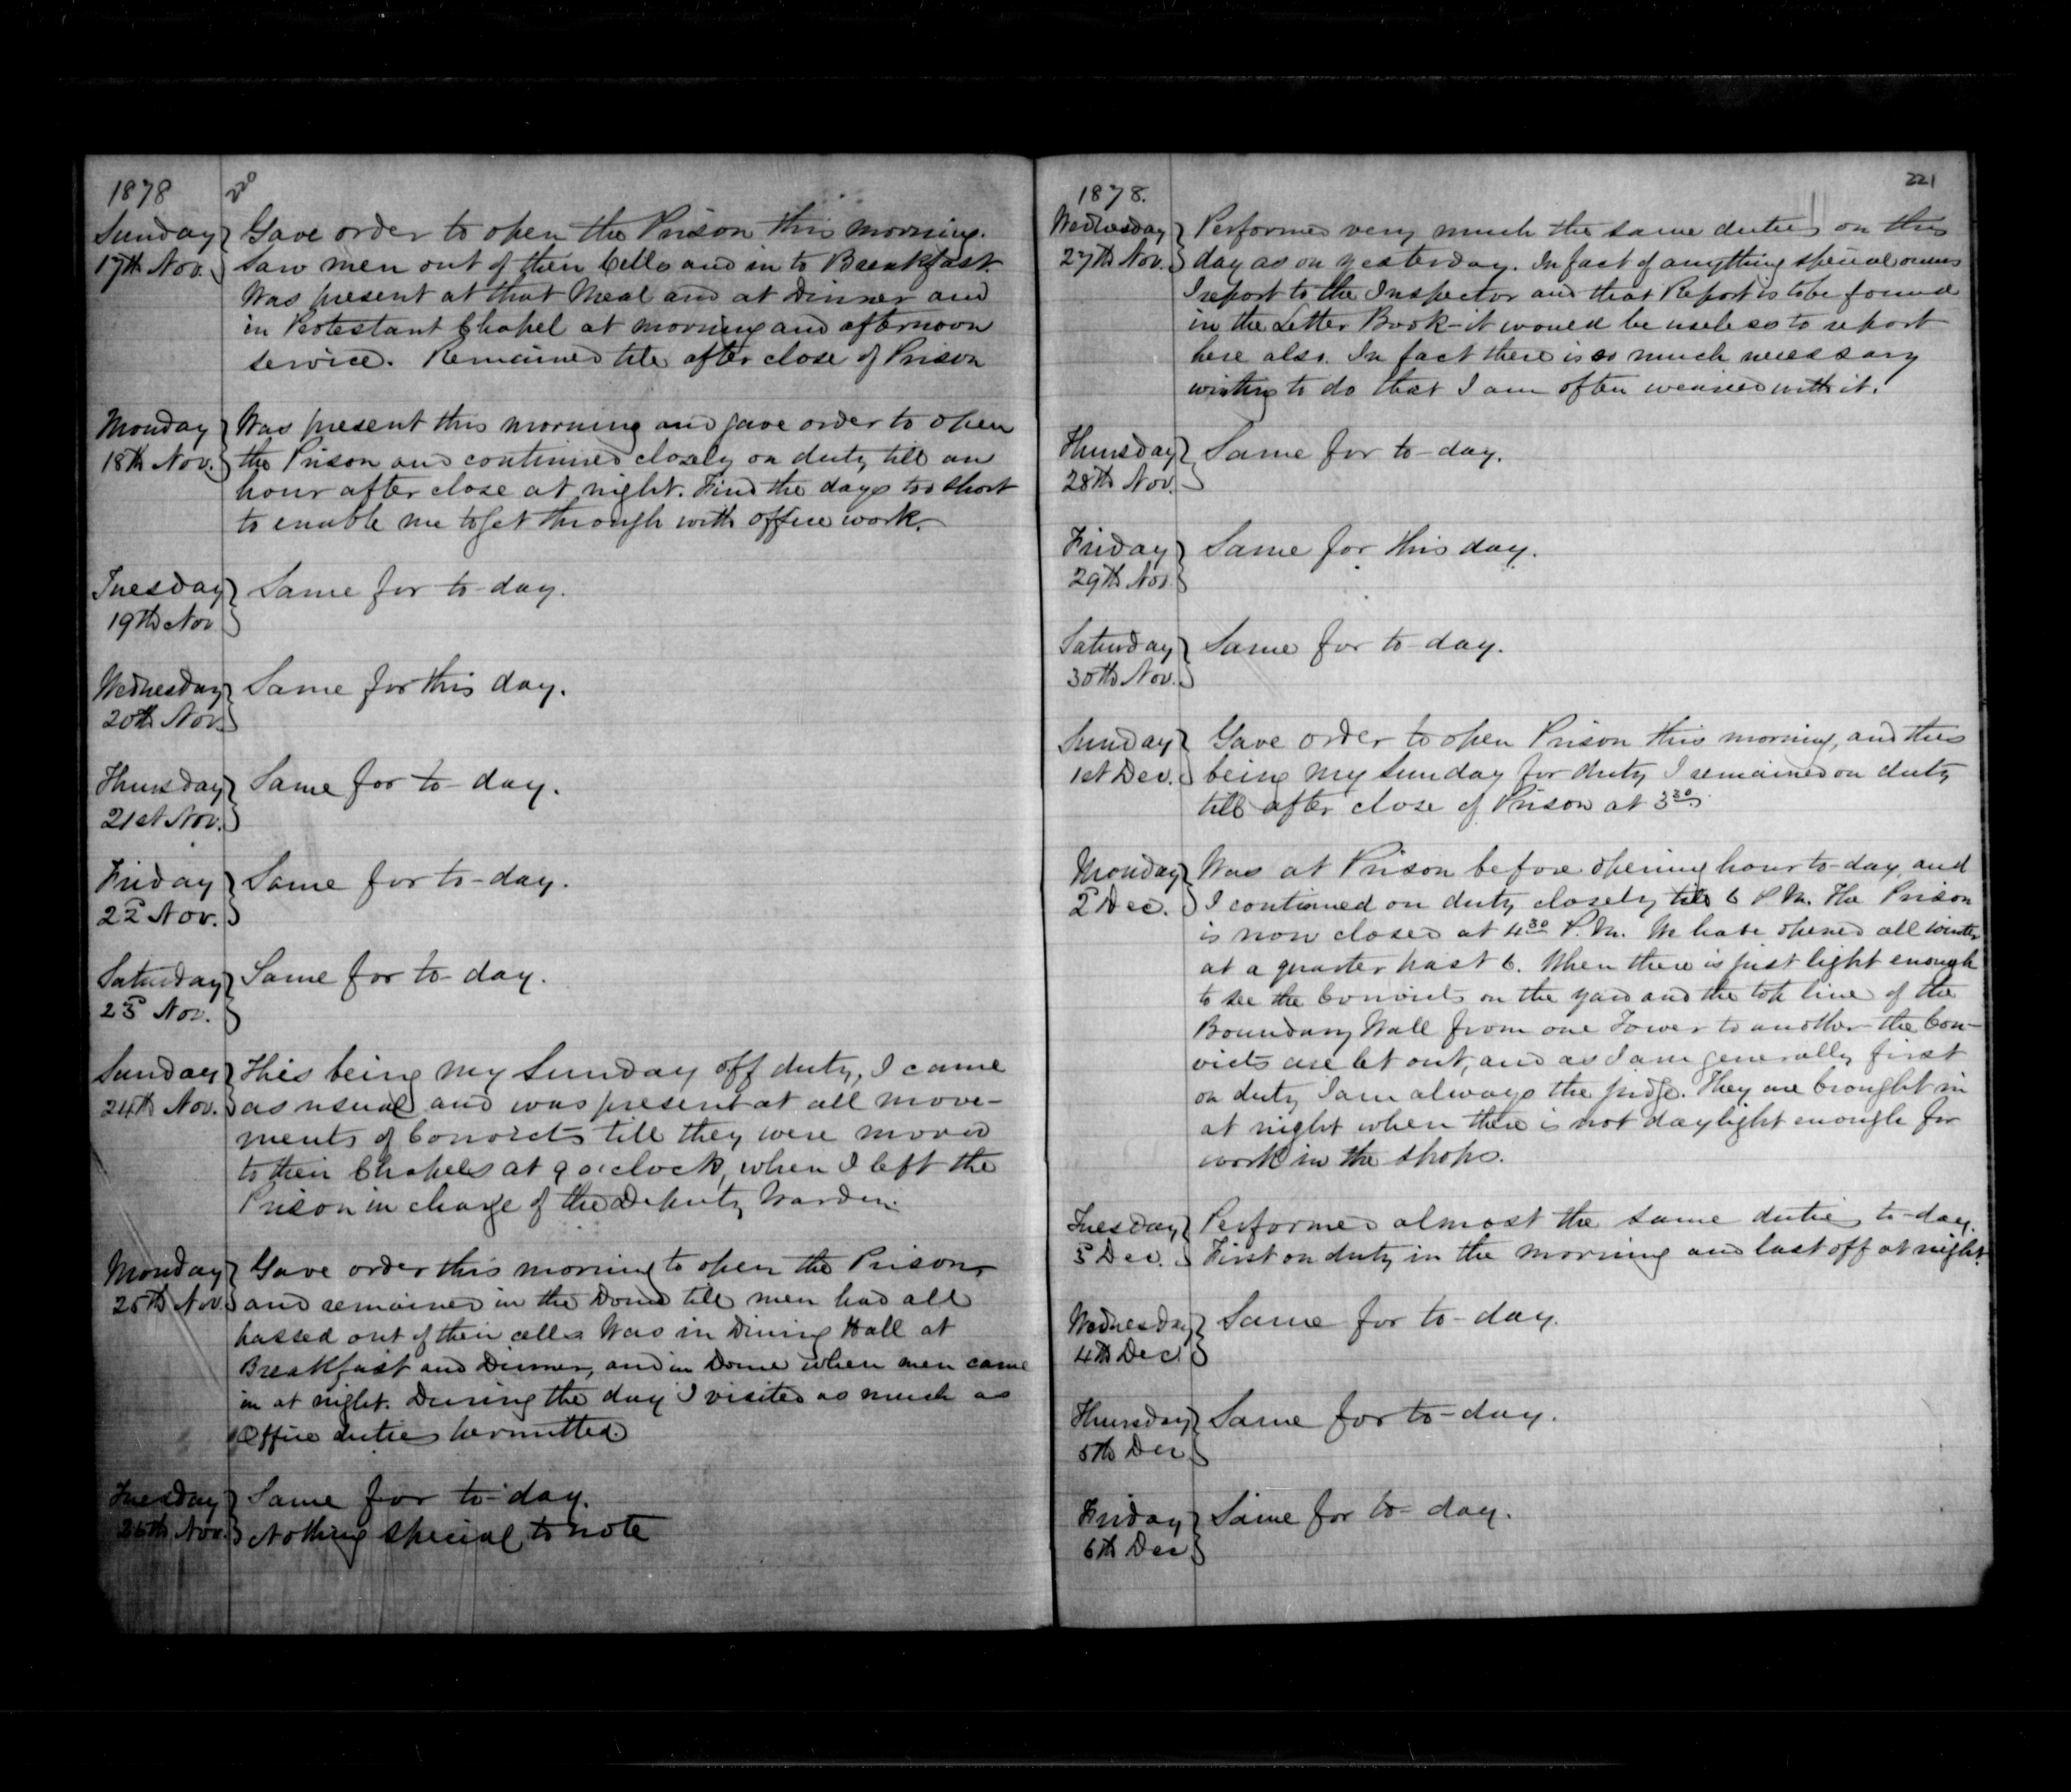 1878
220
Sunday } Gave order to open the Prison this morning.
17th Nov. } Saw men out of their Cells and in to Breakfast.
Was present at that Meal and at Dinner and
in Protestant Chapel at morning and afternoon
service. Remained till after close of Prison
Monday } Was present this morning and gave order to open
18th Nov. } the Prison and continued closely on duty till an
hour after close at night. Find the days too short
to enable me to get through with office work.
Tuesday } Same for to-day.
19th Nov }
Wednesday } Same for this day.
20th Nov. }
Thursday } Same for to-day.
21st Nov. }
Friday } Same for to-day.
22d Nov. }
Saturday } Same for to-day.
23d Nov. }
Sunday } This being my Sunday off duty, I came
24th Nov. } as usual and was present at all move-
ments of Convicts till they were moved
to their Chapels at 9 o'clock, when I left the
Prison in charge of the Deputy Warden.
Monday } Gave order this morning to open the Prison,
25th Nov. } and remained in the Dome till men had all
passed out of their cells. Was in Dining Hall at
Breakfast and Dinner, and in Dome when men came
in at night. During the day I visited as much as
Office duties permitted.
Tuesday } Same for to-day.
26th Nov. } Nothing special to note
1878.
221
Wednesday } Performed very much the same duties on this
27th Nov. } day as on yesterday. In fact if anything special occurs
I report to the Inspector and that Report is to be found
in the Letter Book - it would be useless to report
here also. In fact there is so much necessary
writing to do that I am often wearied with it.
Thursday } Same for to-day.
28th Nov. }
Friday } Same for this day.
29th Nov }
Saturday } Same for to-day.
30th Nov. }
Sunday } Gave order to open Prison this morning, and this
1st Dec. } being my Sunday for duty I remained on duty
till after close of Prison at 3 30.
Monday } Was at Prison before opening hour to-day, and
2d Dec. } I continued on duty closely till 6 P.M. The Prison
is now closed at 4 30 P.M. We have opened all winter
at a quarter past 6. When there is just light enough
to see the Convicts on the yard and the top line of the
Boundary Wall from one Tower to another the Con-
victs are let out, and as I am generally first
on duty I am always the judge. They are brought in
at night when there is not daylight enough for
work in the shops.
Tuesday } Performed almost the same duties to-day.
3d Dec. } First on duty in the morning and last off at night.
Wednesday } Same for to-day.
4th Dec. }
Thursday } Same for to-day.
5th Dec }
Friday } Same for to-day.
6th Dec }